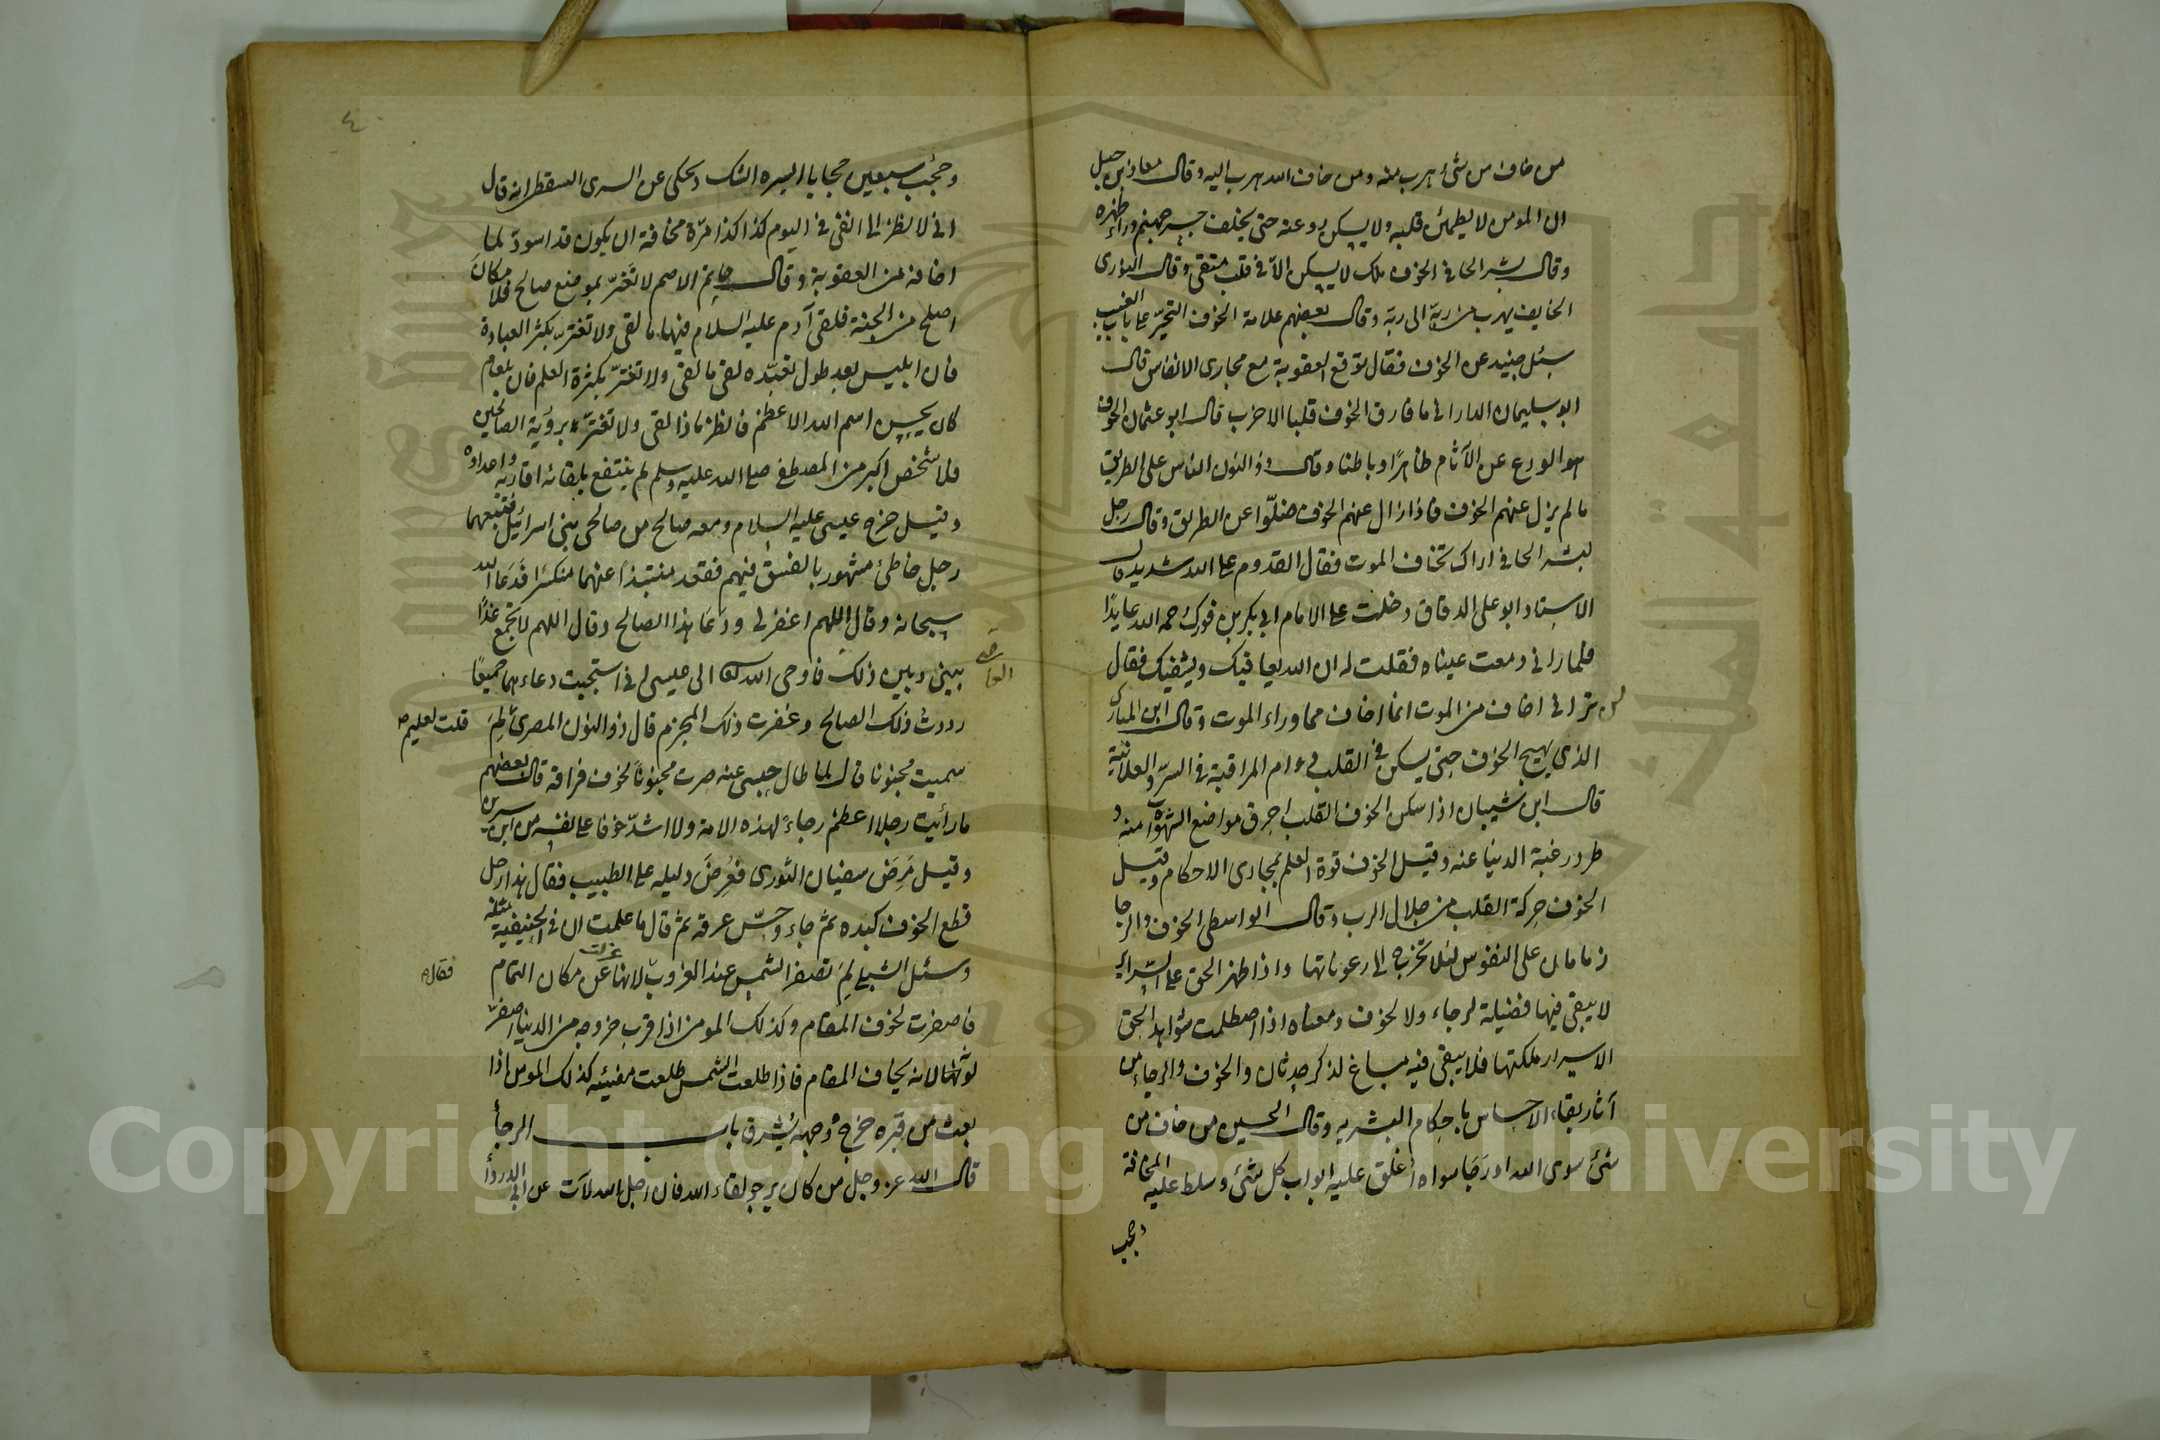 من خاف من شئ هرب منه ومن خاف الله هرب اليه وقال معاذ بن جبل
ان المومن لا يطمئن قلبه ولا يسكن روعته حتى يخلف جسر جهنم وراء ظهره
وقال بشر الحافي الخوف ملك لا يسكن الا في قلب متقى وقال النورى
الخايف يهرب من ربه الى ربه وقال بعضهم علامة الخوف التحير على باب الغيب
سئل جنيد عن الخوف فقال توقع العقوبة مع مجارى الانفاس قال
ابو سليمان الدارانى ما فارق الخوف قلبا الا خرب قال ابو عثمان الخوف
هو الورع عن الآثام ظاهرًا وباطنا وقال ذو النون الناس على الطريق
ما لم يزل عنهم الخوف فاذا زال عنهم الخوف ضلّوا عن الطريق وقال رجل
لبشر الحافى اراك تخاف الموت فقال القدوم على الله شديد قال
الاستاد ابو على الدقاق دخلت على الامام ابى بكر بن فورك رحمه الله عايدًا
فلما رانى دمعت عيناه فقلت له ان الله يعافيك ويشفيك فقال
لى ترانى اخاف من الموت انما اخاف مما وراء الموت وقال ابن المبارك
الذي يهيج الخوف حتى يسكن فى القلب دوام المراقبة فى السرّ والعلانية
قال ابن شيبان اذا سكن الخوف القلب احرق مواضع الشهوات منه و
طرد رغبة الدنيا عنه وقيل الخوف قوة العلم بمجارى الاحكام وقيل
الخوف حركة القلب من جلال الرب وقال الواسطى الخوف والرجا
زمامان على النفوس لئلا تخرج الى رعوناتها واذا ظهر الحق على السراير
لا يبقى فيها فضيلة لرجاء ولا لخوف ومعناه اذا اصطلمت شواهد الحق
الاسرار ملكتها فلا يبقى فيه مساغ لذكر حدثان والخوف والرجاء من
آثار بقاء الاحساس باحكام البشريه وقال الحسين من خاف من
شئ سوى الله او رجا سواه أغلق عليه ابواب كل شئ وسلط عليه المخافة
وحجب
٤٠
وحُجب بسبعين حجابا ايسره الشك ويحكى عن السرى السقطى انه قال
انى لانظر الى انفى فى اليوم كذا كذا مرّة مخافة ان يكون قد اسودّ لما
اخافه من العقوبة وقال حاتم الاصم لا تغترّ بموضع صالح فلا مكان
اصلح من الجنة فلقى آدم عليه السلام فيها ما لقى ولا تغتر بكثرة العبادة
فان ابليس بعد طول تعبّده لقى ما لقى ولا تغترّ بكثرة العلم فان بلعام
كان يحسن اسم الله الاعظم فانظر ماذا لقى ولا تغترّ برؤية الصالحين
فلا شخص اكبر من المصطفى صلى الله عليه وسلم لم ينتفع بلقائه اقاربه واعداؤه
وقيل خرج عيسى عليه السلام ومعه صالح من صالحى بنى اسرائيل فتبعهما
رجل خاطئ مشهور بالفسق فيهم فقعد منتبذًا عنهما منكسرًا فدعا الله
سبحانه وقال اللهم اغفر لى ودعا هذا الصالح وقال اللهم لا تجمع غدًا
بينى وبين ذلك العاصى فاوحى الله الى عيسى انى استجبت دعاءهما جميعًا
رددت ذلك الصالح وغفرت ذلك المجرم قال ذو النون المصرى قلت لعليم لم
سميت مجنونا قال لما طال حبسى عنه صرت مجنونًا لخوف فراقه قال بعضهم
ما رأيت رجلا اعظم رجاءً لهذه الامة ولا اشدّ خوفا على نفسه من ابن سيرين
وقيل مَرِضَ سفيان الثورى فعُرِضَ دليله على الطبيب فقال هذا رجل
قطع الخوف كبده ثم جاء وجسّ عرقه ثم قال ما علمت ان فى الحنيفية مثله
وسئل الشبلى لِمَ تصفر الشمس عند الغروب فقال لانها عزلت عن مكان التمام
فاصفرت لخوف المقام وكذلك المومن اذا قرب خروجه من الدنيا اصفرّ
لونه لانه يخاف المقام فاذا طلعت الشمس طلعت مضيئه كذلك المومن اذا
بعث من قبره خرج ووجهه يشرق باب الرجأ
قال الله عز وجل من كان يرجو لقاء الله فان اجل الله لآت عن ابى الدردأ